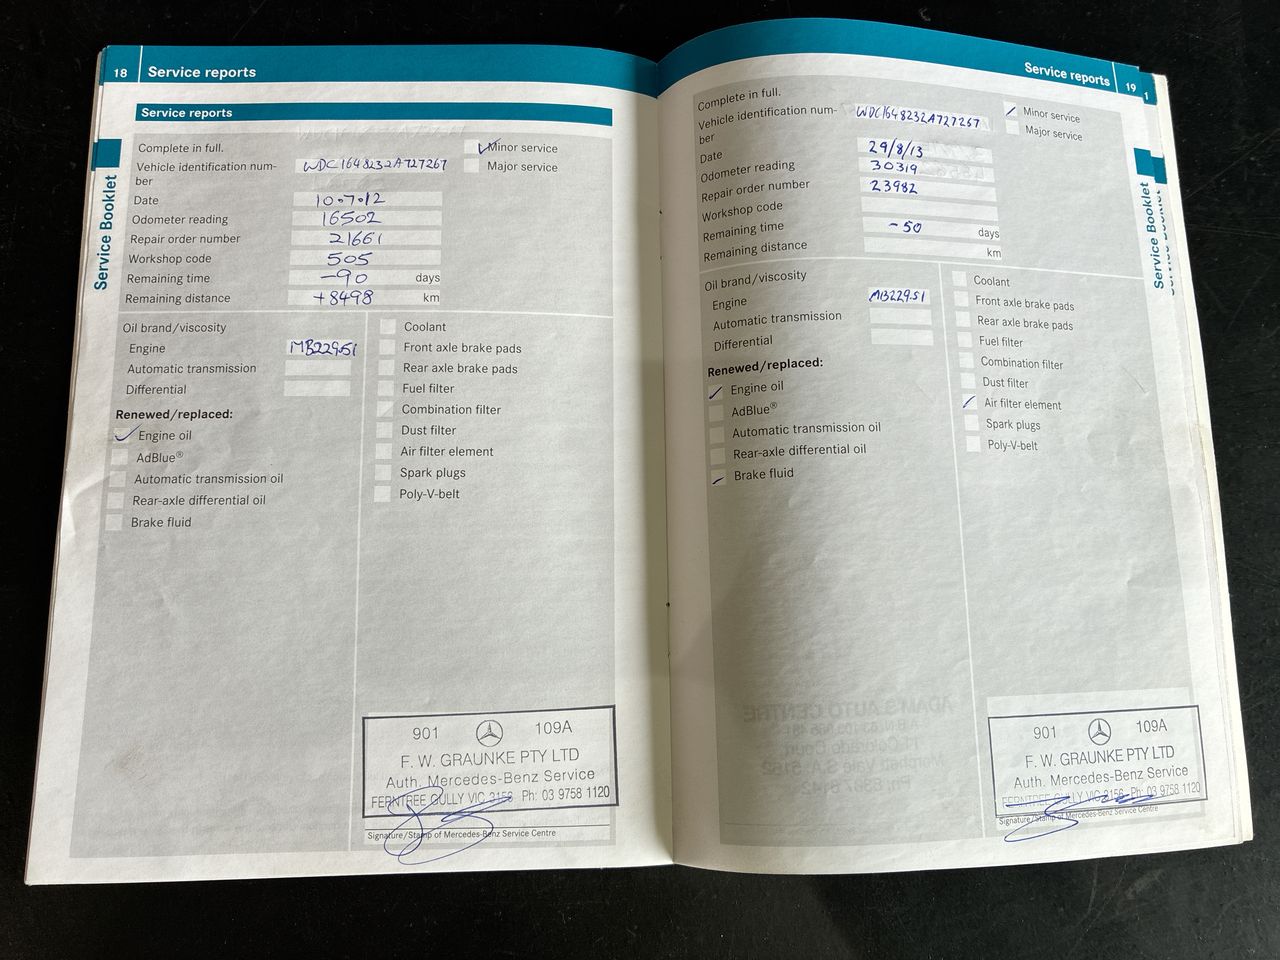 18 Service reports
Service Booklet
Service reports
Complete in full.
Minor service
Vehicle identification num-
ber
WDC1648232A727267
Major service
Date 10.7.12
Odometer reading 16502
Repair order number 21661
Workshop code 505
Remaining time -90 days
Remaining distance +8498 km
Oil brand/viscosity
Engine MB229.51
Automatic transmission
Differential
Renewed/replaced:
Engine oil
AdBlue®
Automatic transmission oil
Rear-axle differential oil
Brake fluid
Coolant
Front axle brake pads
Rear axle brake pads
Fuel filter
Combination filter
Dust filter
Air filter element
Spark plugs
Poly-V-belt
901 109A
F. W. GRAUNKE PTY LTD
Auth. Mercedes-Benz Service
FERNTREE GULLY VIC 3156 Ph: 03 9758 1120
Signature/Stamp of Mercedes-Benz Service Centre
Service reports 19
1
Service Booklet
Complete in full.
Minor service
Vehicle identification num-
ber
WDC1648232A727267
Major service
Date 29/8/13
Odometer reading 30319
Repair order number 23982
Workshop code
Remaining time -50 days
Remaining distance km
Oil brand/viscosity
Engine MB229.51
Automatic transmission
Differential
Renewed/replaced:
Engine oil
AdBlue®
Automatic transmission oil
Rear-axle differential oil
Brake fluid
Coolant
Front axle brake pads
Rear axle brake pads
Fuel filter
Combination filter
Dust filter
Air filter element
Spark plugs
Poly-V-belt
901 109A
F. W. GRAUNKE PTY LTD
Auth. Mercedes-Benz Service
FERNTREE GULLY VIC 3156 Ph: 03 9758 1120
Signature/Stamp of Mercedes-Benz Service Centre